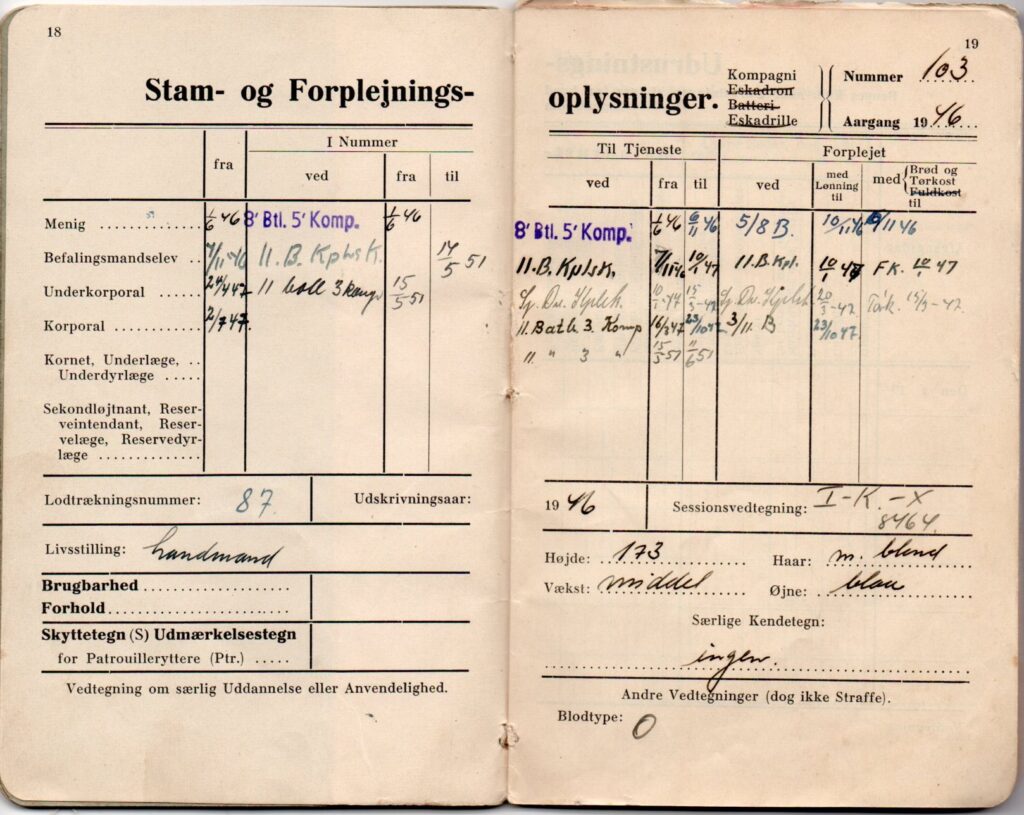 18
Stam- og Forplejnings-
I Nummer
fra
ved
fra
til
Menig
1/6 46
8' Btl. 5' Komp.
1/6 46
Befalingsmandselev
7/11 46
II. B.
14/5 51
Underkorporal
24/4 47
II
3
15/5 51
Korporal
2/7 47.
Kornet, Underlæge,
Underdyrlæge
Sekondløjtnant, Reser-
veintendant, Reser-
velæge, Reservedyr-
læge
Lodtrækningsnummer: 87.
Udskrivningsaar:
Livsstilling: Landmand
Brugbarhed
Forhold
Skyttetegn (S) Udmærkelsestegn
for Patrouilleryttere (Ptr.)
Vedtegning om særlig Uddannelse eller Anvendelighed.
19
oplysninger.
Kompagni
Eskadron
Batteri
Eskadrille
Nummer 103
Aargang 1946
Til Tjeneste
Forplejet
ved
fra
til
ved
med Lønning til
med
Brød og Tørkost
Fuldkost
til
8' Btl. 5' Komp.
1/6 46
6/11 46
5/8 B.
10/11 46
11 46
II. B. Kplsk.
7/11 46
10/1 47
II. B. Kpl.
10/1 47
FK. 10/1 47
10/1-47
15/3-47
20/3-47
15/3-47
II. Batl. 3. Komp
16/3 47
23/10 47
3/II. B
23/10 47.
II. " 3 "
15/5 51
11/6 51
1946
Sessionsvedtegning: I-K.-X
8464.
Højde: 173
Haar: m. blond
Vækst: middel
Øjne: blaa
Særlige Kendetegn:
ingen.
Andre Vedtegninger (dog ikke Straffe).
Blodtype: O